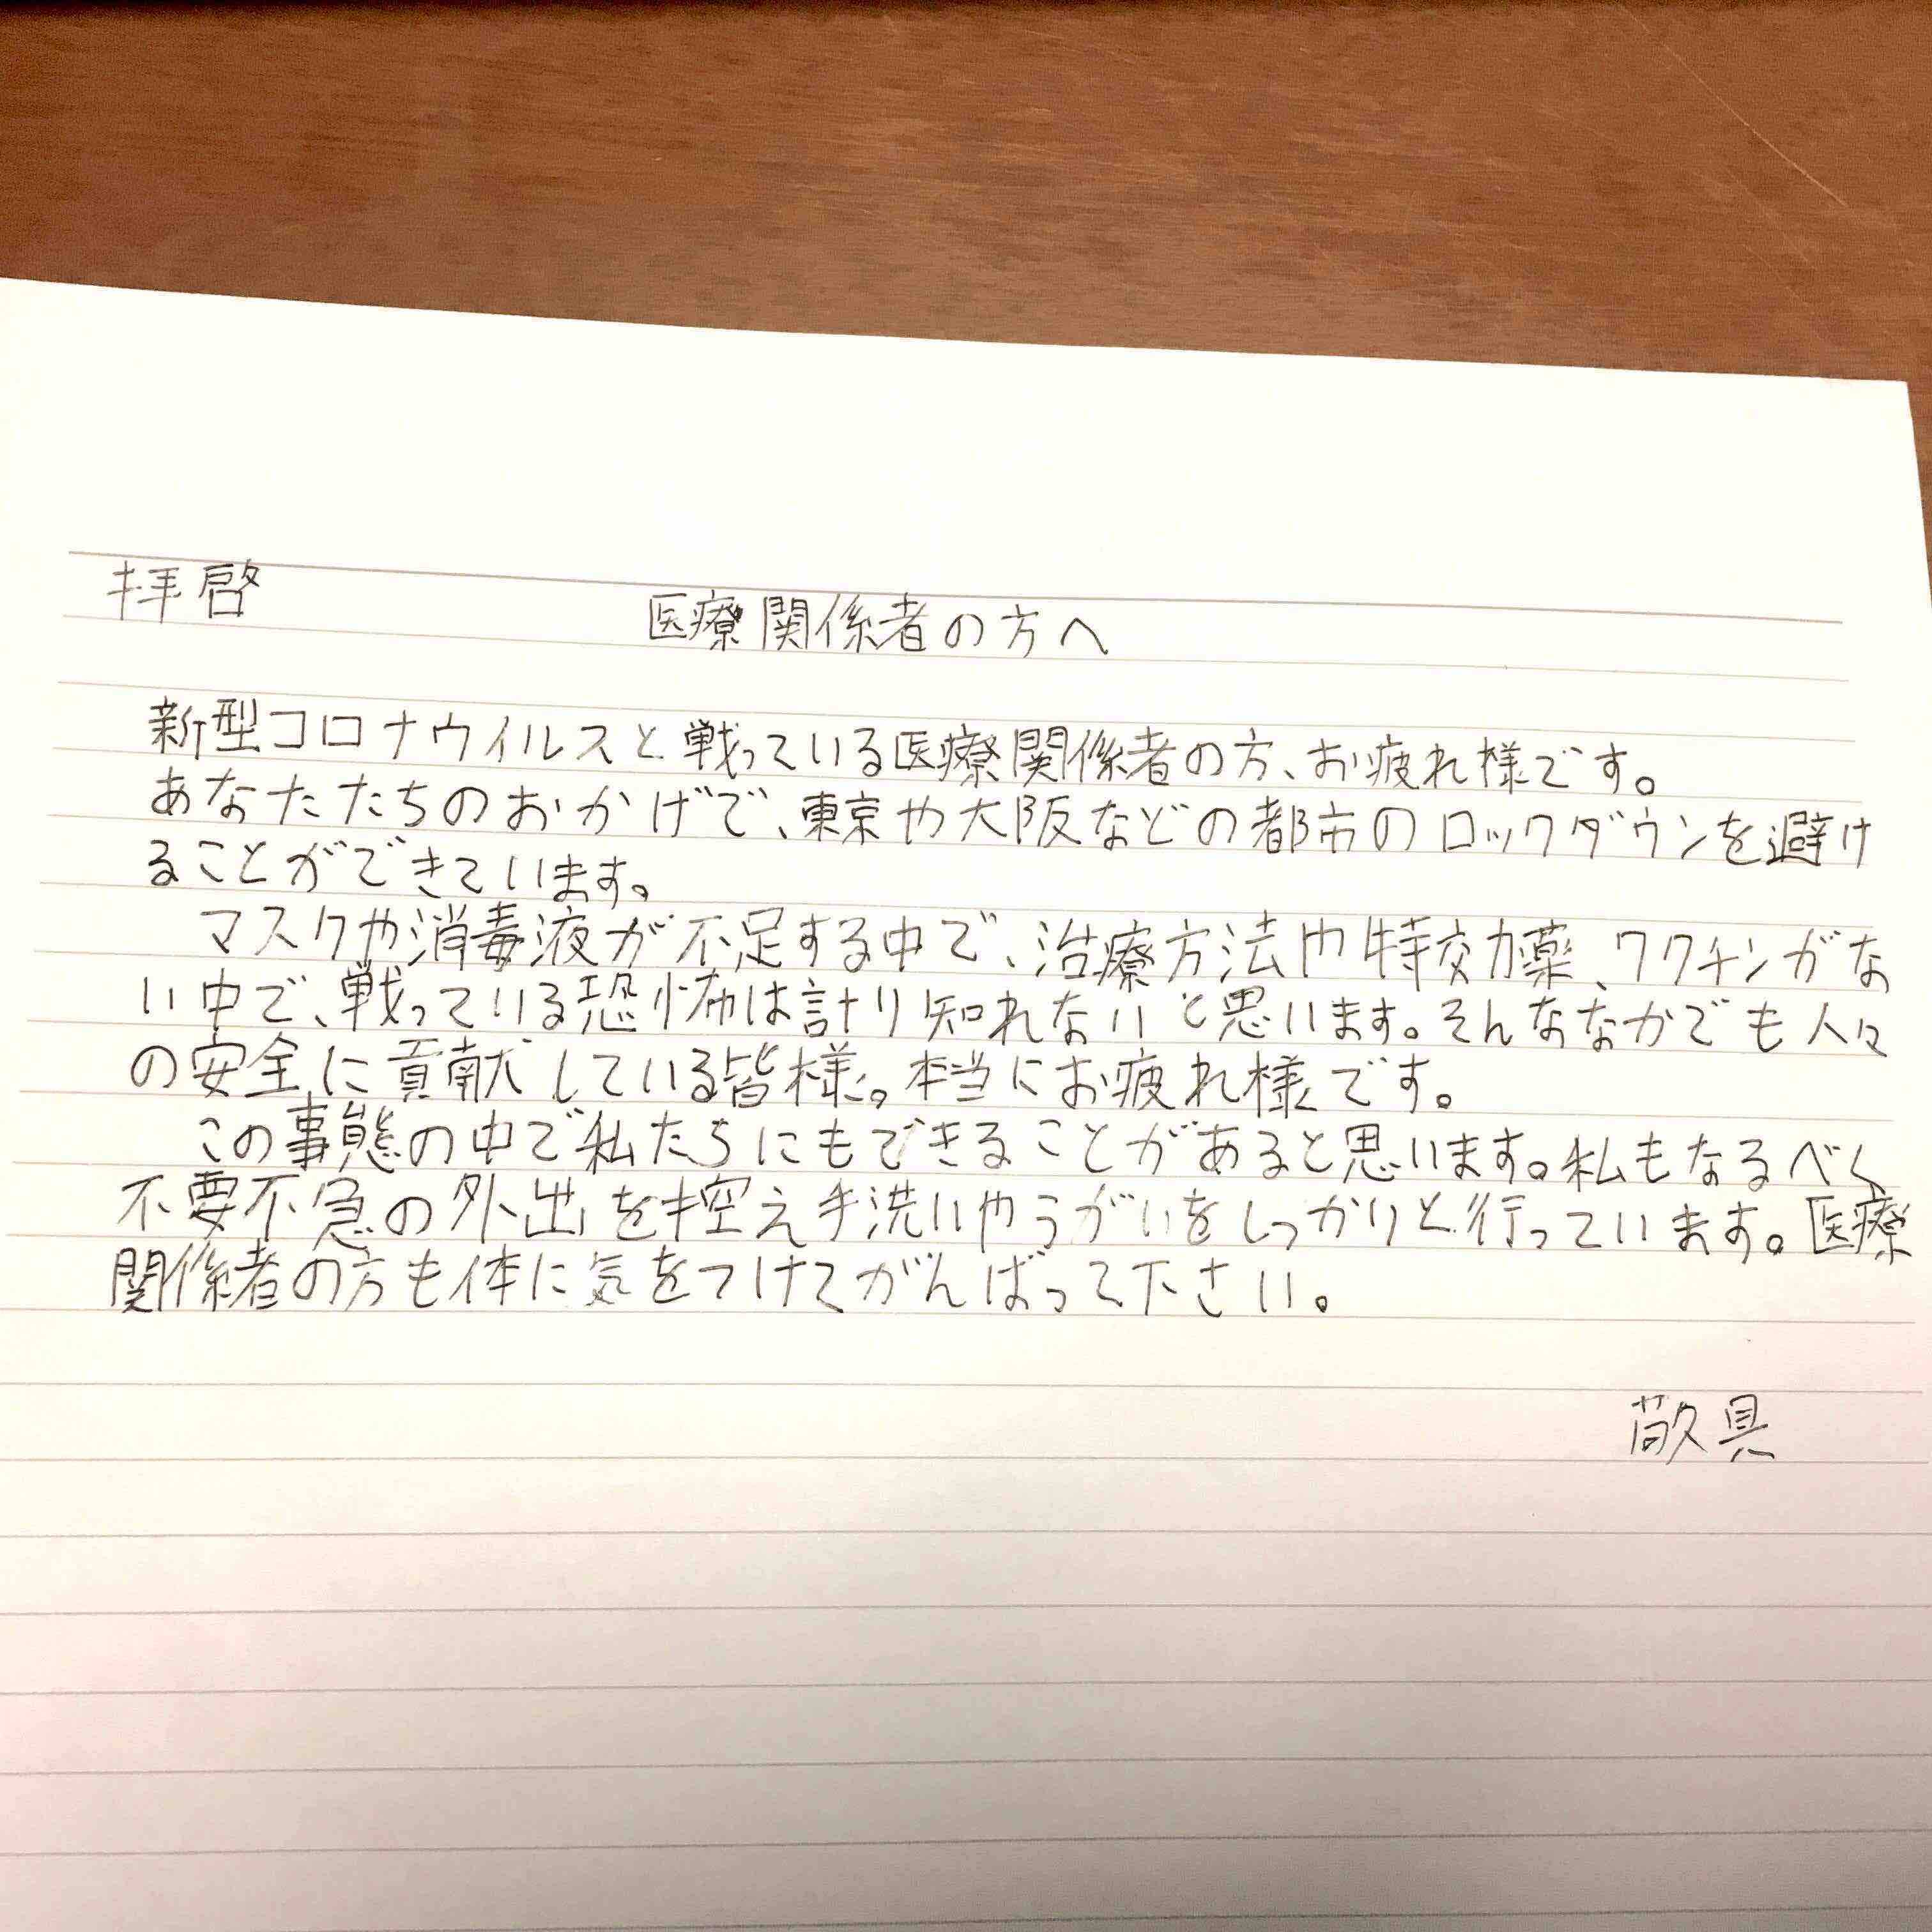 拝啓
医療関係者の方へ
新型コロナウイルスと戦っている医療関係者の方、お疲れ様です。
あなたたちのおかげで、東京や大阪などの都市のロックダウンを避け
ることができています。
マスクや消毒液が不足する中で、治療方法や特効薬、ワクチンがな
い中で、戦っている恐怖は計り知れないと思います。そんななかでも人々
の安全に貢献している皆様。本当にお疲れ様です。
この事態の中で私たちにもできることがあると思います。私もなるべく
不要不急の外出を控え手洗いやうがいをしっかりと行っています。医療
関係者の方も体に気をつけてがんばって下さい。
敬具